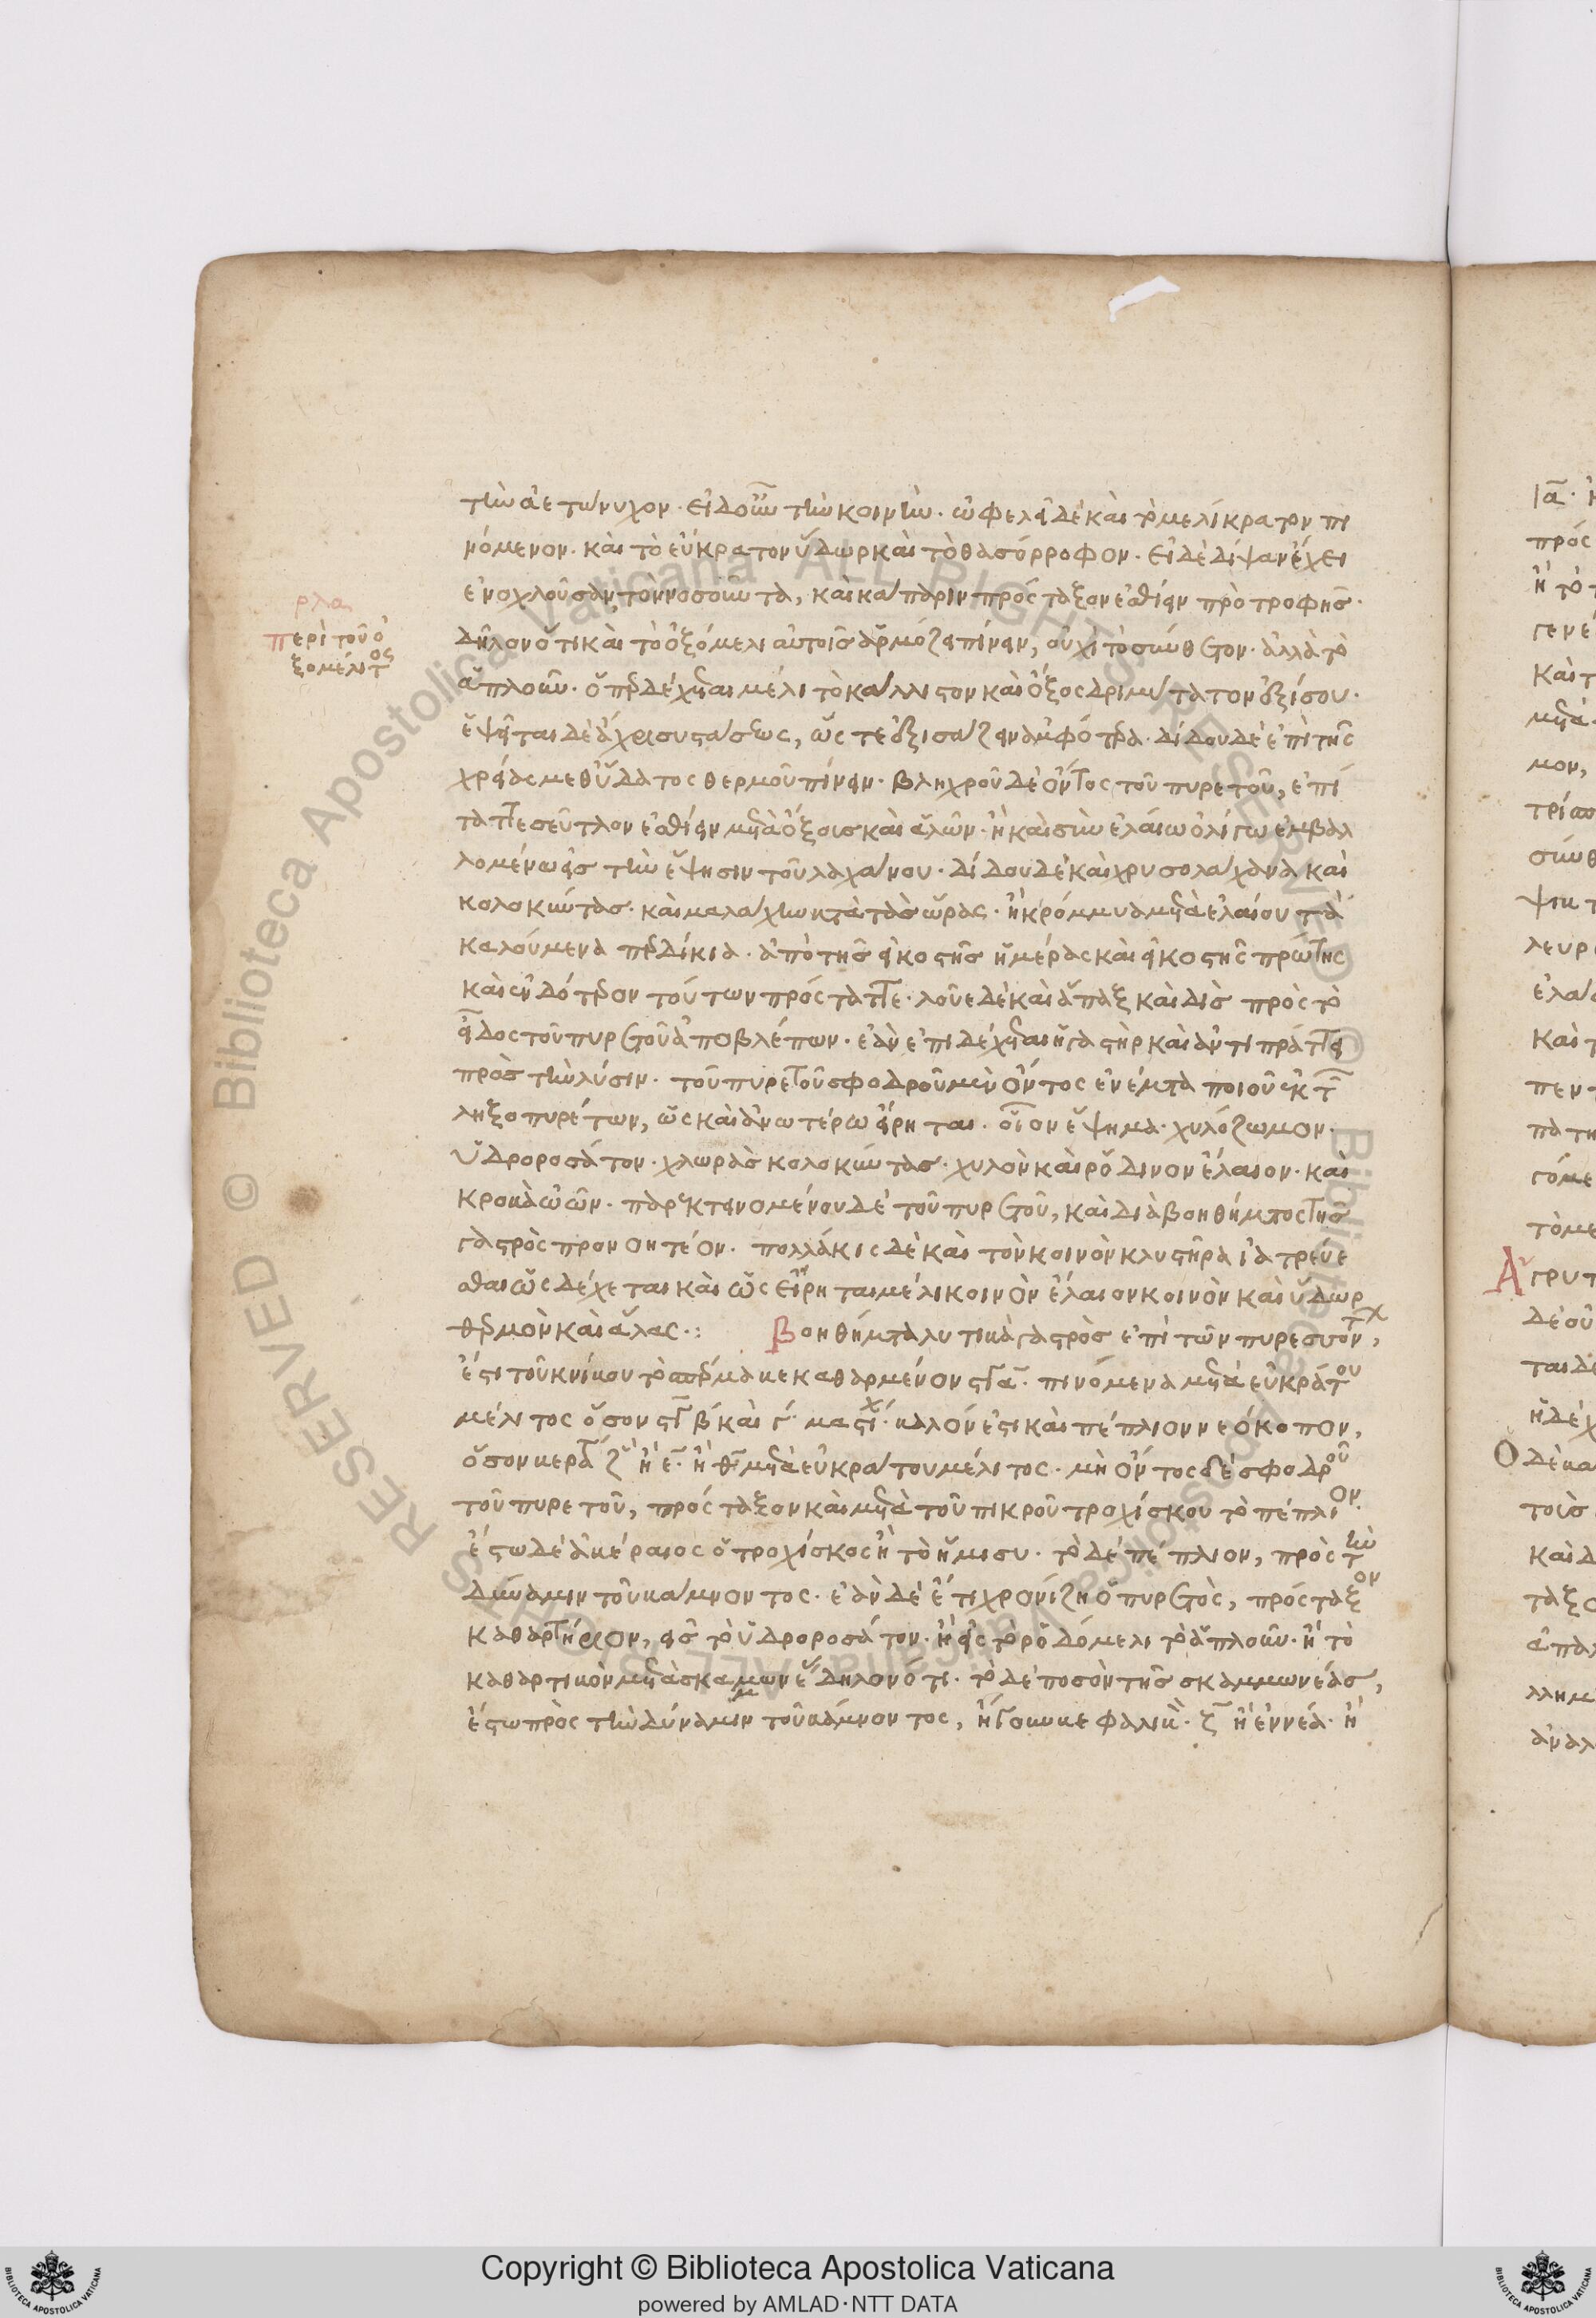 τὴν ἀετώνυχον. εἰ δ' οὖν τὴν κοινήν. ὠφελεῖ δὲ καὶ τὸ μελίκρατον πι
νόμενον. καὶ τὸ εὔκρατον ὕδωρ καὶ τὸ θασόρροφον. εἰ δὲ δίψαν ἔχει
ἐνοχλοῦσαν τὸν νοσοῦντα, καὶ κάππαριν πρόσταξον ἐσθίειν πρὸ τροφῆς.
ρλα
περὶ τοῦ ὀ
ξομέλιτος
δῆλον ὅτι καὶ τὸ ὀξόμελι αὐτοῖς ἁρμόζει πίνειν, οὐχὶ τὸ σύνθετον. ἀλλὰ τὸ
ἁπλοῦν. ὅπερ δέχεται μέλι τὸ κάλλιστον καὶ ὄξος δριμύτατον ἐξίσου.
ἑψεῖται δὲ ἄχρι συστάσεως, ὥστε ἐξισάζειν ἀμφότερα. δίδου δὲ ἐπὶ τῆς
χρείας μεθ' ὕδατος θερμοῦ πίνειν. βληχροῦ δὲ ὄντος τοῦ πυρετοῦ, ἐπί
ταττε σεῦτλον ἐσθίειν μετὰ ὄξους καὶ ἁλῶν. ἢ καὶ σὺν ἐλαίω ὀλίγω ἐμβαλ
λομένω εἰς τὴν ἕψησιν τοῦ λαχάνου. δίδου δὲ καὶ χρυσολάχανα καὶ
κολοκύντας. καὶ μαλάχην κατὰ τὰς ὥρας. ἢ κρόμμυα μετὰ ἐλαίου τὰ
καλούμενα περδίκια. ἀπὸ τῆς εἰκοστῆς ἡμέρας καὶ εἰκοστῆς πρώτης
καὶ ἐνδότερον τούτων πρόσταττε. λοῦε δὲ καὶ ἅπαξ καὶ δὶς πρὸς τὸ
εἶδος τοῦ πυρετοῦ ἀποβλέπων. ἐὰν ἐπιδέχεται ἡ γαστὴρ καὶ ἀντιπράττει
πρὸς τὴν λύσιν. τοῦ πυρετοῦ σφοδροῦ μὲν ὄντος ἐνέματα ποιοῦ ἐκ τῶν
ληξοπυρέτων, ὡς καὶ ἀνωτέρω εἴρηται. οἷον ἕψημα. χυλόζωμον.
ὑδροροσάτον. χλωρὰς κολοκύντας. χυλὸν καὶ ῥόδινον ἔλαιον. καὶ
κροκὰ ὠῶν. παρεκτεινομένου δὲ τοῦ πυρετοῦ, καὶ διὰ βοηθήματος τῆς
γαστρὸς προνοητέον. πολλάκις δὲ καὶ τὸν κοινὸν κλυστῆρα ἰατρεύε
σθαι ὡς δέχεται καὶ ὡς εἴρηται μέλι κοινὸν ἔλαιον κοινὸν καὶ ὕδωρ
θερμὸν καὶ ἅλας.: Βοηθήματα λυτικὰ γαστρὸς ἐπὶ τῶν πυρεσσόντων,
ἔστι τοῦ κνίκου τὸ σπέρμα κεκαθαρμένον στγ α. πινόμενα μετὰ εὐκράτου
μέλιτος ὅσον στγ β καὶ γ. καλόν ἐστι καὶ πέπλιον νεόκοπον,
ὅσον κεράτια ζ ἢ ε. ἢ θ μετὰ εὐκράτου μέλιτος. μὴ ὄντος δὲ σφοδροῦ
τοῦ πυρετοῦ, πρόσταξον καὶ μετὰ τοῦ πικροῦ τροχίσκου τὸ πέπλιον.
ἔστω δὲ ἀκέραιος ὁ τροχίσκος ἢ τὸ ἥμισυ. τὸ δὲ πέπλιον, πρὸς τὴν
δύναμιν τοῦ κάμνοντος. ἐὰν δὲ ἔτι χρονίζη ὁ πυρετὸς, πρόσταξον
καθαρτήριον, εἰς τὸ ὑδροροσάτον. ἢ εἰς τὸ ῥοδόμελι τὸ ἁπλοῦν. ἢ τὸ
καθαρτικὸν μετὰ σκαμμωνέας δηλονότι. τὸ δὲ ποσὸν τῆς σκαμμωνέας,
ἔστω πρὸς τὴν δύναμιν τοῦ κάμνοντος, ἤγουν κεφαλικὰ. ζ ἢ ἐννέα. ἢ
Copyright © Biblioteca Apostolica Vaticana
powered by AMLAD·NTT DATA